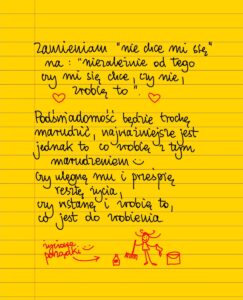 Zamieniam "nie chce mi się"
na: "niezależnie od tego
czy mi się chce, czy nie,
zrobię to".
Podświadomość będzie trochę
marudzić, najważniejsze jest
jednak to co zrobię z tym
marudzeniem
czy ulegnę mu i prześpię
resztę życia,
czy wstanę i zrobię to,
co jest do zrobienia
porządki